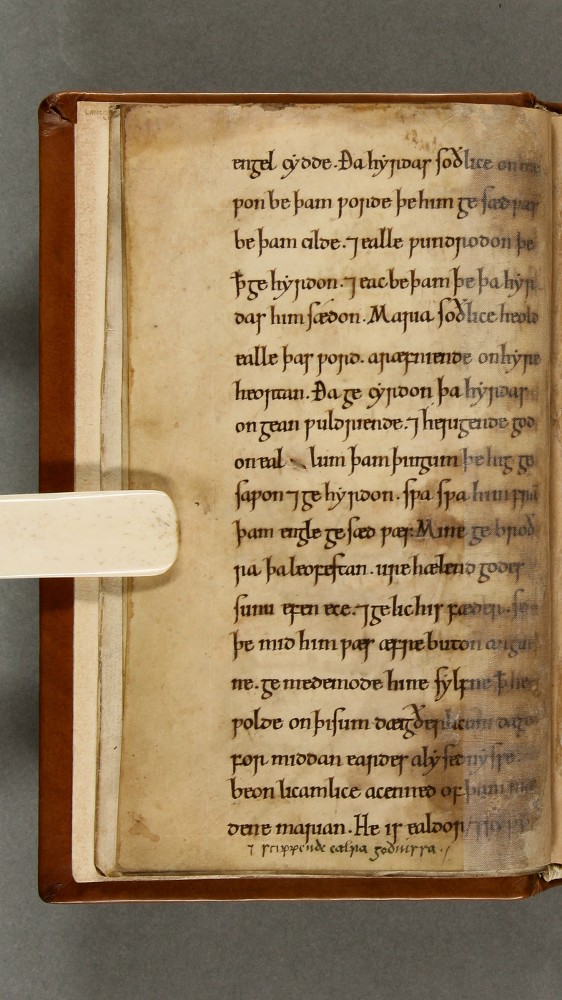 engel cẏdde. Ða hẏrdas soðlice
ƿon be þam ƿorde þe him ge sæd ƿæs
be þam cilde. ⁊ ealle ƿundrodon þe
ꝥ ge hẏrdon. ⁊ eac be þam þe þa hẏr
das him sædon. Maria soðlice heold
ealle þas ƿord. aræfniende on hẏre
heortan. Ða ge cẏrdon þa hẏrdas
on gean ƿuldriende. ⁊ herigende god
on eal lum þam þingum þe hig ge
saƿon ⁊ ge hẏrdon. sƿa sƿa him fram
þam engle ge sæd ƿæs. Mine ge broð
ra þa leofestan. ure hælend godes
sunu efen ece. ⁊ ge lic his fæder. se
þe mid him ƿæs æfre buton
ne. ge medemode hine sẏlfne ꝥ he
ƿolde on þisum dæigðerlicum dæge
for middan eardes alẏsednẏsse.
beon licamlice acenned of þam
dene marian. He is ealdor
⁊ scippende ealra godnissa.